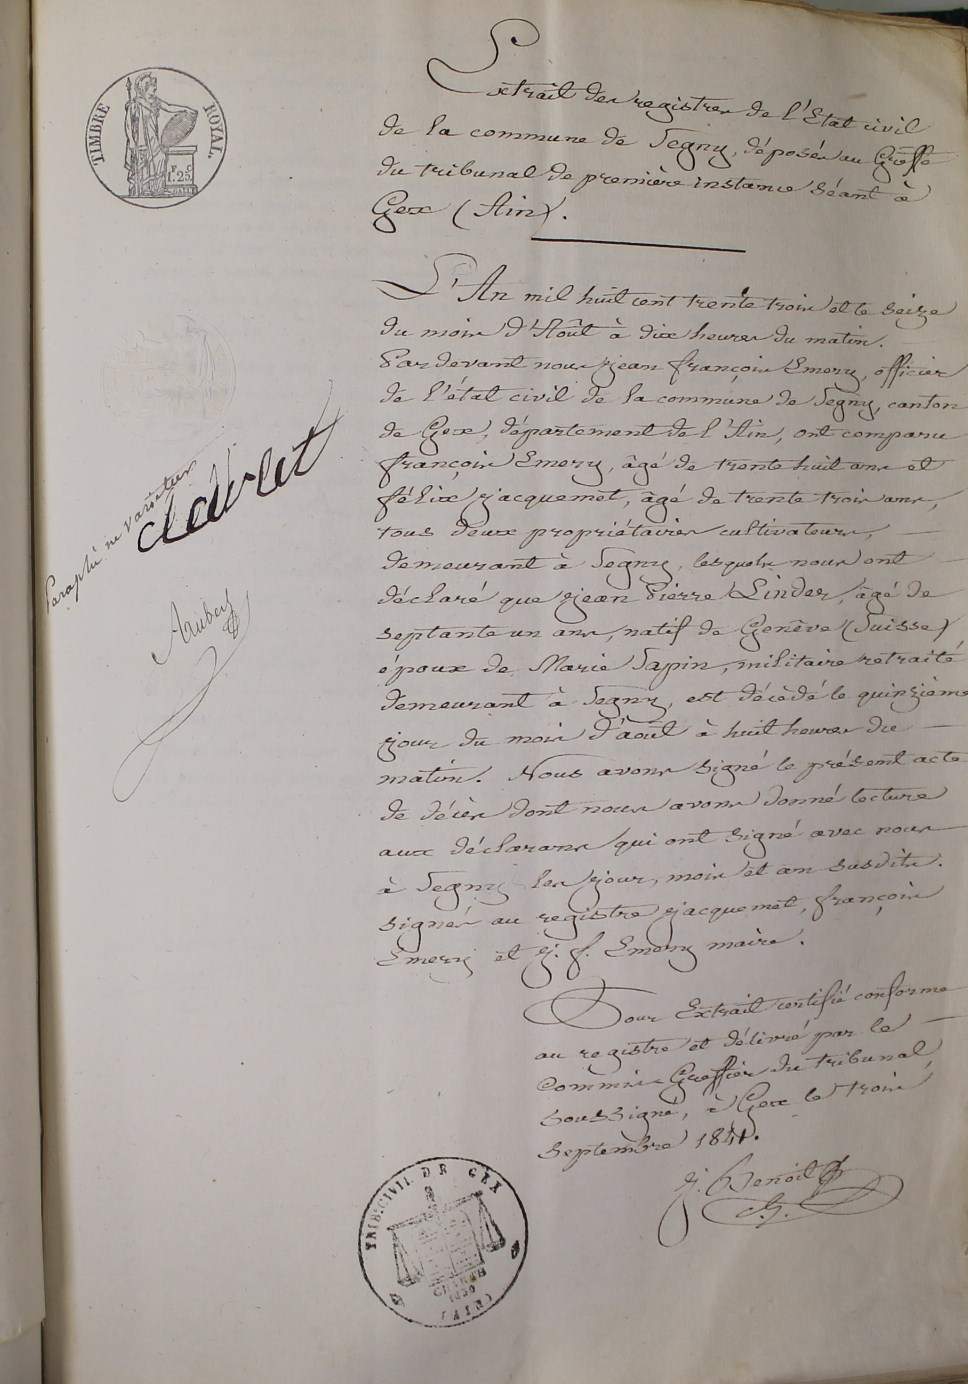 TIMBRE ROYAL.
1.25
Extrait des registres de l'Etat civil
de la commune de Segny, déposés au Greffe
du tribunal de première instance séant à
Gex (Ain).
L'An mil huit cent trente trois et le seize
du mois d'Août à dix heures du matin.
Pardevant nous jean françois Emery, officier
de l'état civil de la commune de Segny, canton
de Gex, département de l'Ain, ont comparu
françois Emery, âgé de trente huit ans et
félix jacquemet, âgé de trente trois ans,
tous deux propriétaires cultivateurs,
demeurant à Segny, lesquels nous ont
déclaré que jean Pierre Linder, âgé de
septante un ans, natif de Genève (Suisse)
époux de Marie Sapin, militaire retraité
demeurant à Segny, est décédé le quinzième
jour du mois d'août à huit heures du
matin. Nous avons signé le présent acte
de décès dont nous avons donné lecture
aux déclarans qui ont signé avec nous
à Segny les jour, mois et an susdits.
signés au registre jacquemet, françois
Emery et j. f. Emery maire.
Pour Extrait certifié conforme
au registre et délivré par le
Commis Greffier du tribunal
soussigné, à Gex le trois
septembre 1841.
j. Benoit
Paraphé ne varietur
Aubert
TRIB: CIVIL DE GEX
CHARTE
1830
(AIN)